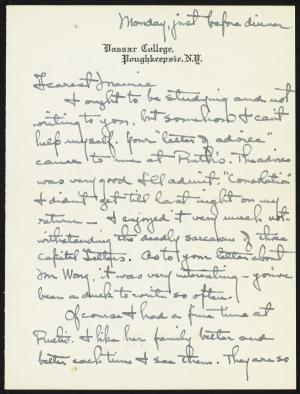 Monday, just before dinner
Vassar College,
Poughkeepsie, N.Y.
Dearest
I ought to be studying and not
writing to you, but somehow I can't
help myself. Your "letter of advice"
came to me at Ruth's. The advice
was very good I'll admit. "Consolation"
I didn't get till last night on my
return – I enjoyed it very much not-
withstanding the deadly sarcasm of those
Capital Letters. As to your letter about
Mr Wong, it was very interesting – you've
been a duck to write so often.
Of course I had a fine time at
Ruth's. I like her family better and
better each time I see them. They are so